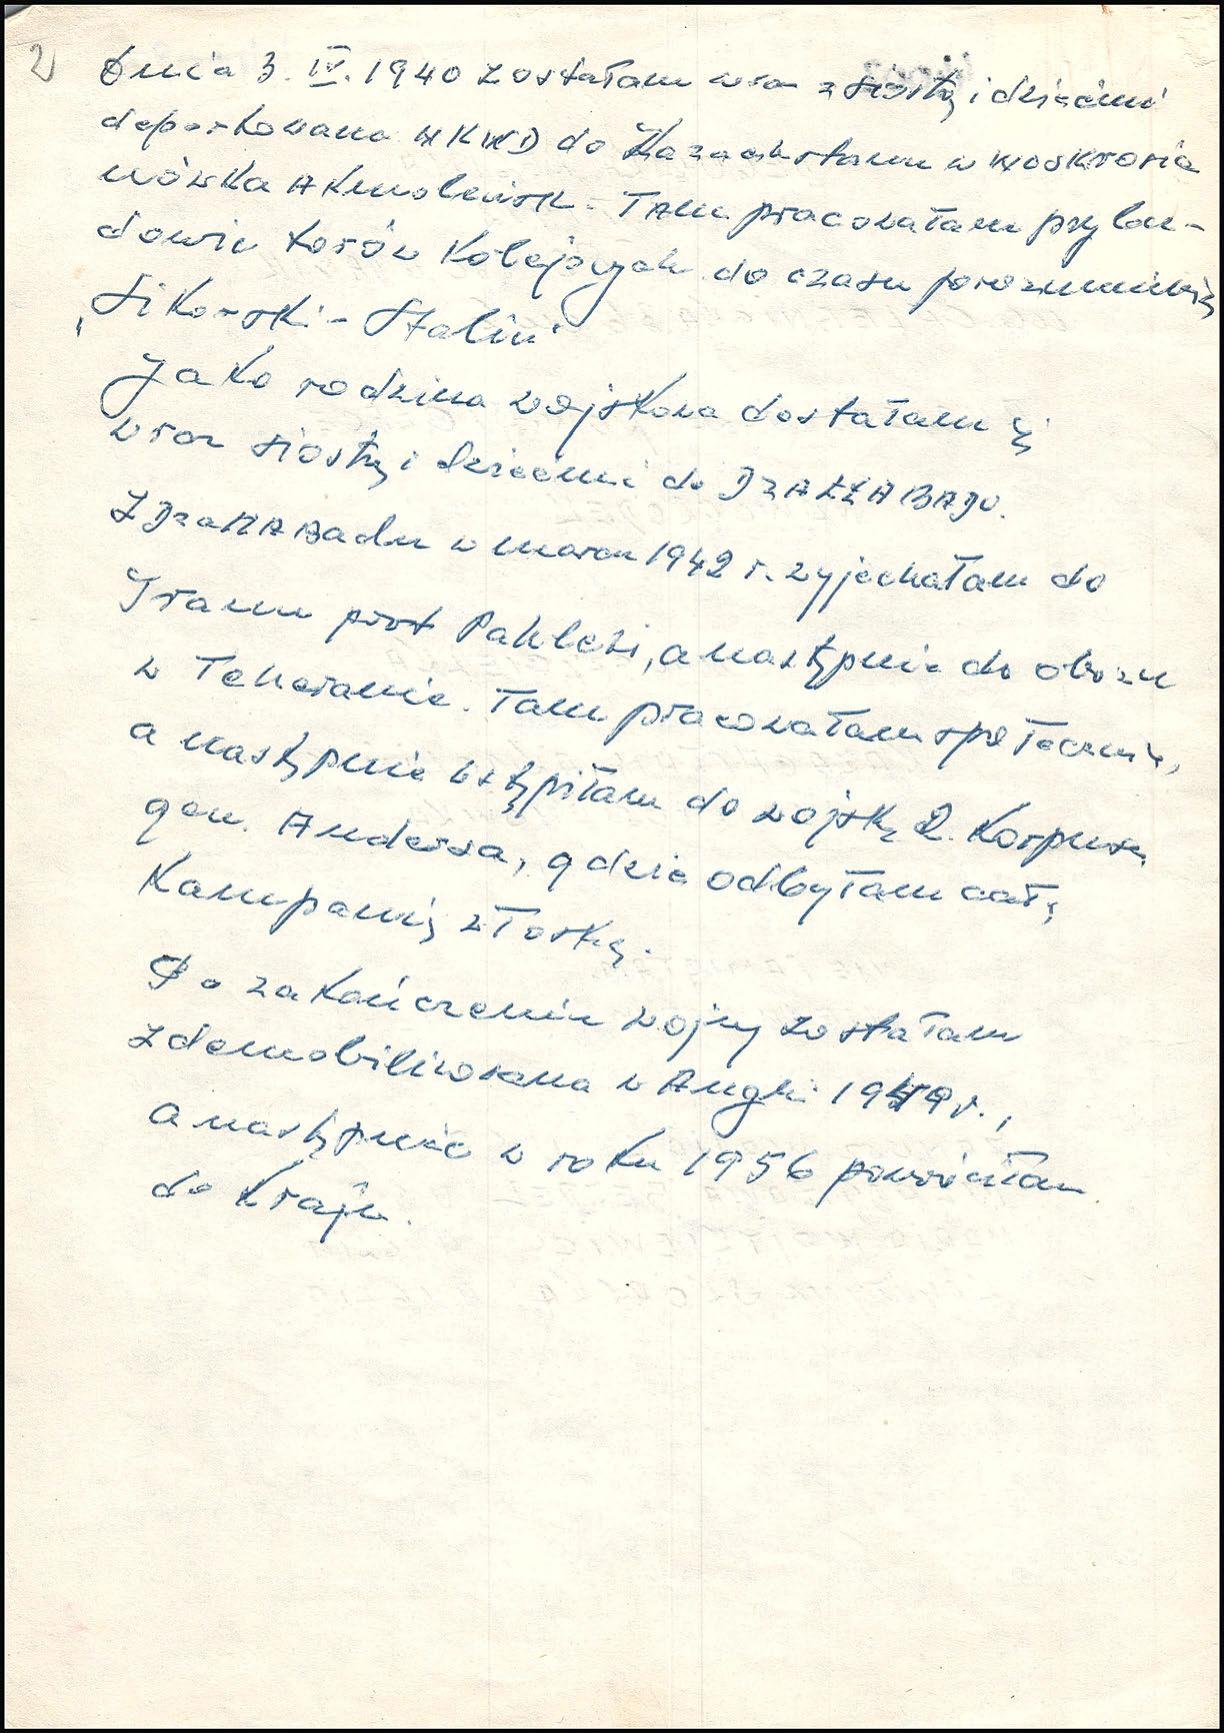 2
Dnia 3. IV. 1940 zostałam wraz z siostrą i dziećmi
deportowana NKWD do Kazachstanu w
Akmoleńsk. Tam pracowałam przy bu-
dowie torów kolejowych do czasu porozumienia
„Sikorski – Stalin"
Jako rodzina wojskowa dostałam się
wraz siostrą i dziećmi do
w marcu 1942 r. wyjechałam do
Iranu port Pahlevi, a następnie do obozu
w Teheranie. Tam pracowałam społecznie,
a następnie wstąpiłam do wojska 2. Korpusu
gen. Andersa, gdzie odbyłam całą
Kampanię włoską.
Po zakończeniu wojny zostałam
zdemobilizowana w Anglii
a następnie w roku 1956 powróciłam
do Kraju.